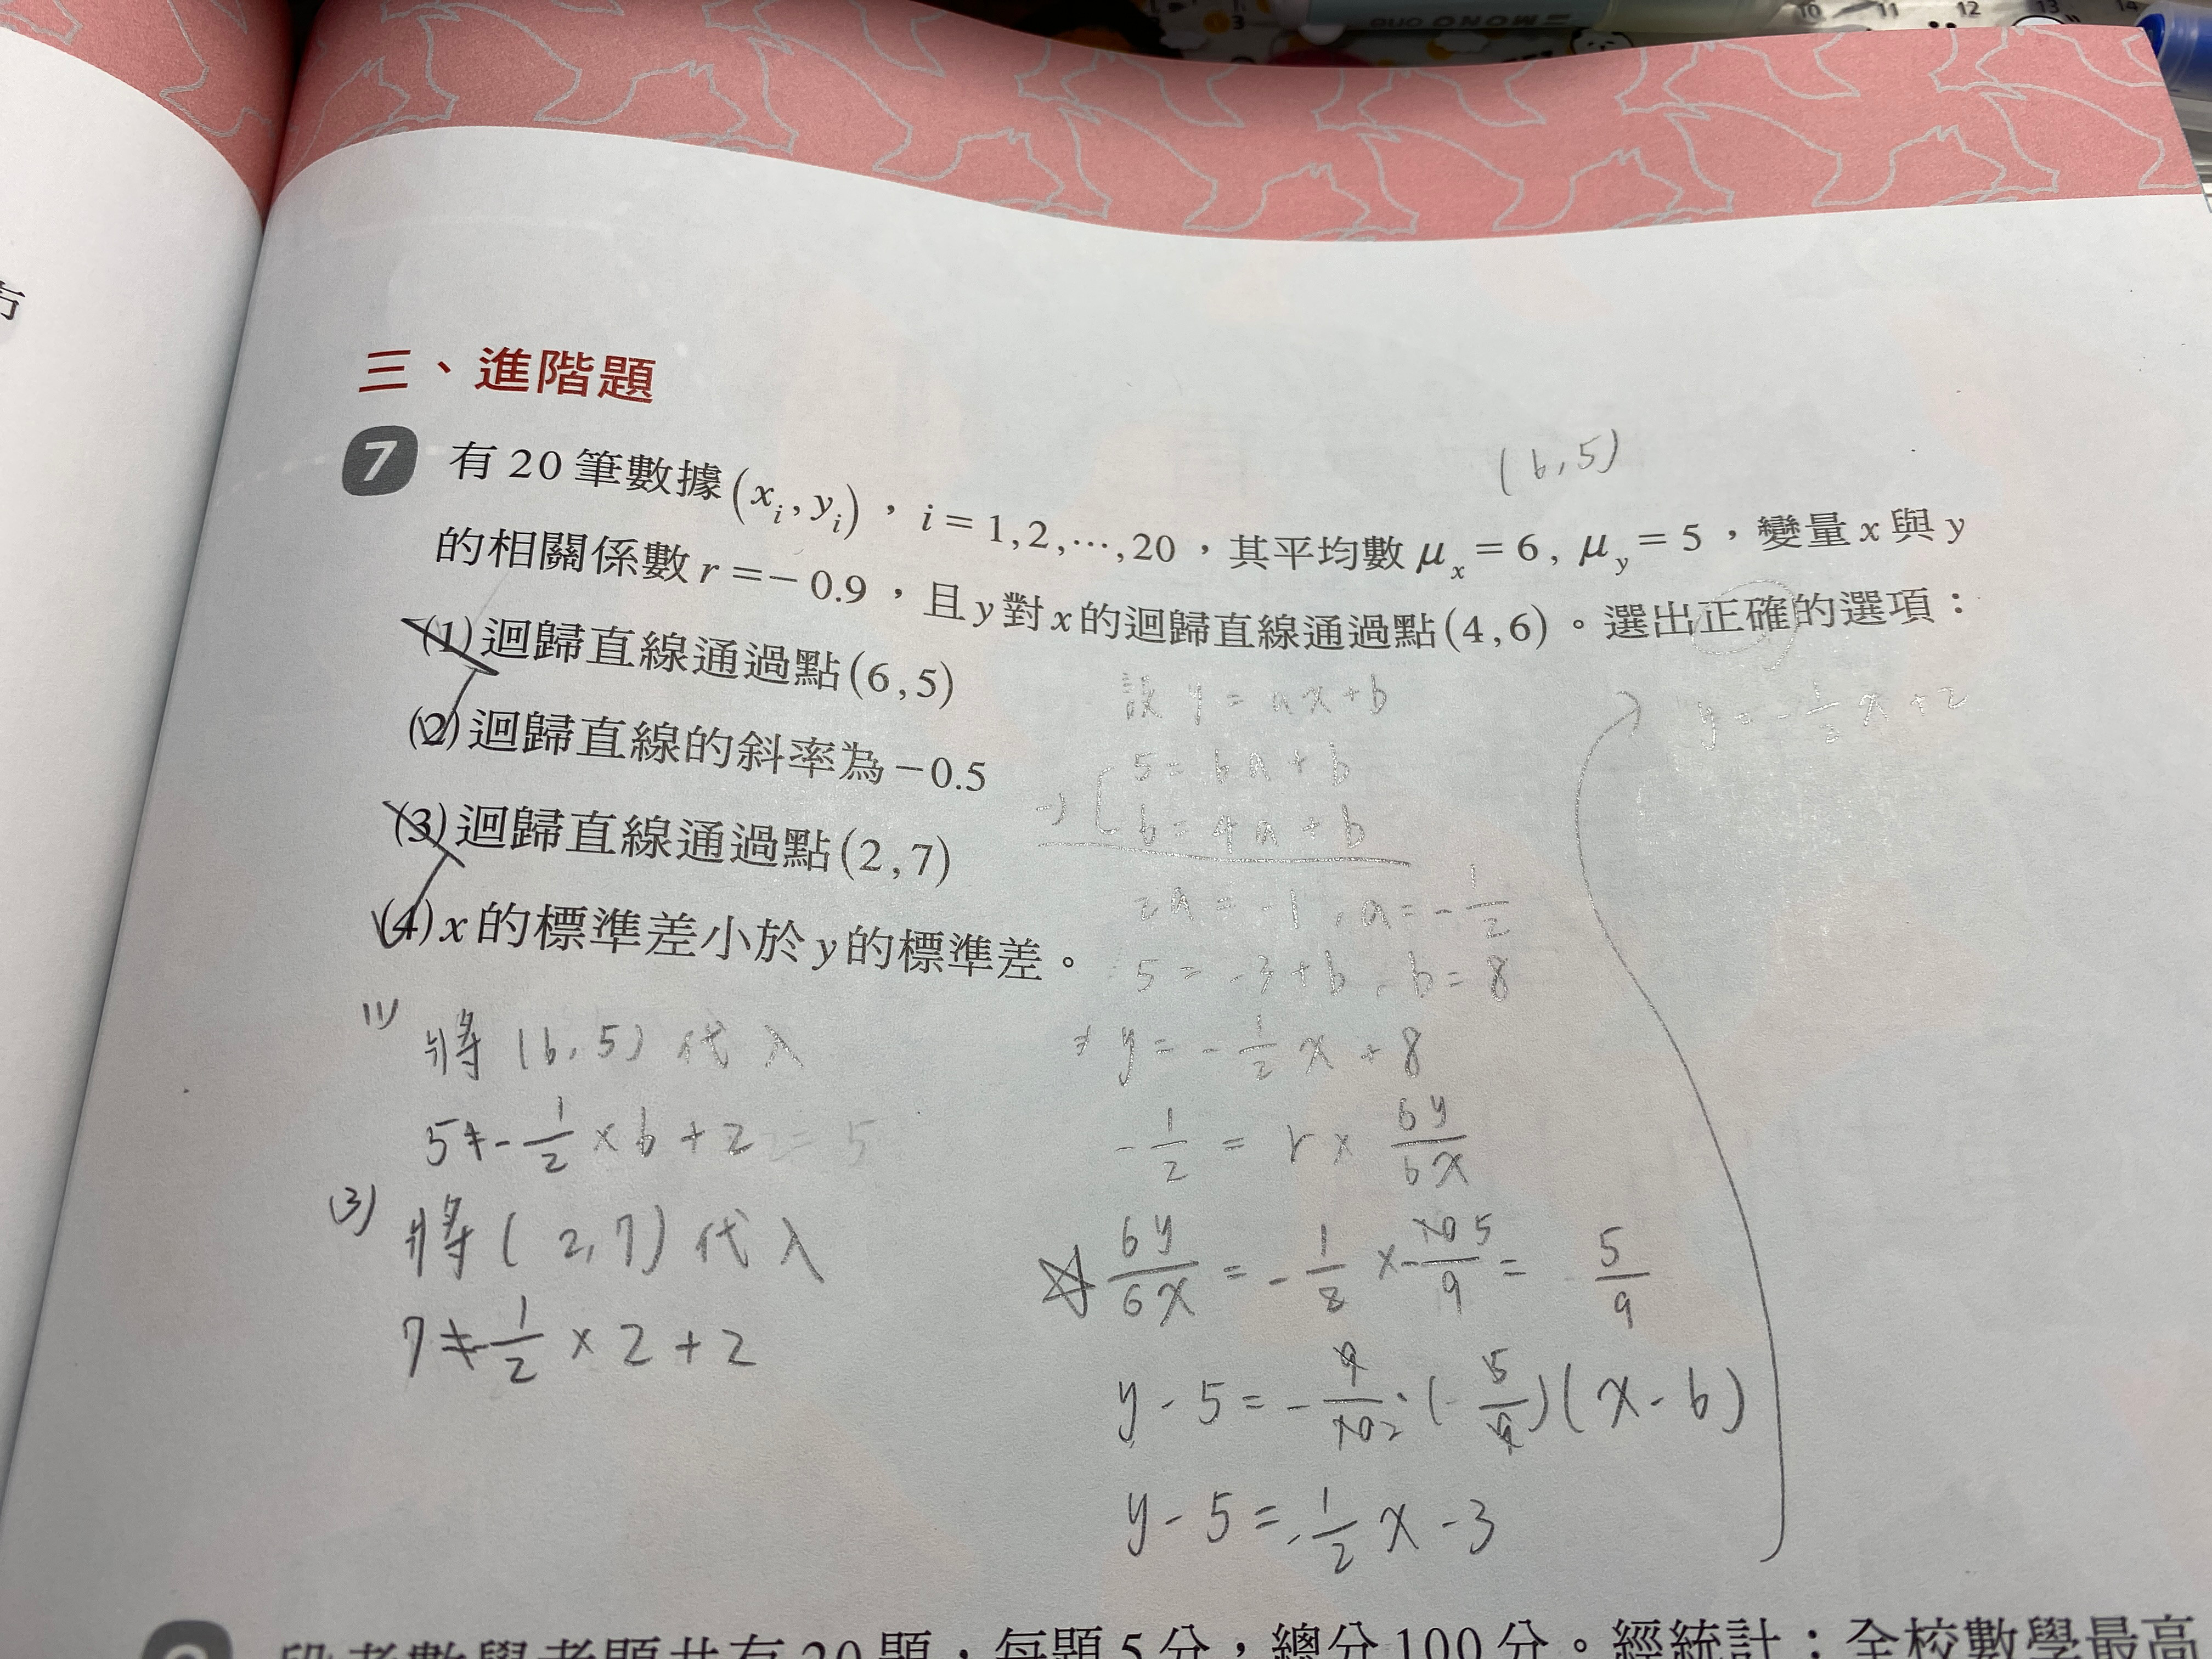 方
三、進階題
(6,5)
7 有20筆數據(xᵢ, yᵢ),i=1,2,⋯,20,其平均數μₓ=6, μᵧ=5,變量x與y
的相關係數r=-0.9,且y對x的迴歸直線通過點(4,6)。選出正確的選項:
(1)迴歸直線通過點(6,5)
(2)迴歸直線的斜率為-0.5
(3)迴歸直線通過點(2,7)
(4)x的標準差小於y的標準差。
(1) 將(6,5)代入
5≠-1/2×6+2=5
(3) 將(2,7)代入
7≠-1/2×2+2
設 y=ax+b
5=6a+b
-) 6=4a+b
2a=-1, a=-1/2
5=-3+b, b=8
⇒ y=-1/2x+8
-1/2=r×6y/6x
☆ 6y/6x=-1/2×-10 5/9=5/9
y-5=-9/10 2·(-5/9)(x-6)
y-5=-1/2x-3
y=-1/2x+2
段考數學考題共有20題,每題5分,總分100分。經統計:全校數學最高